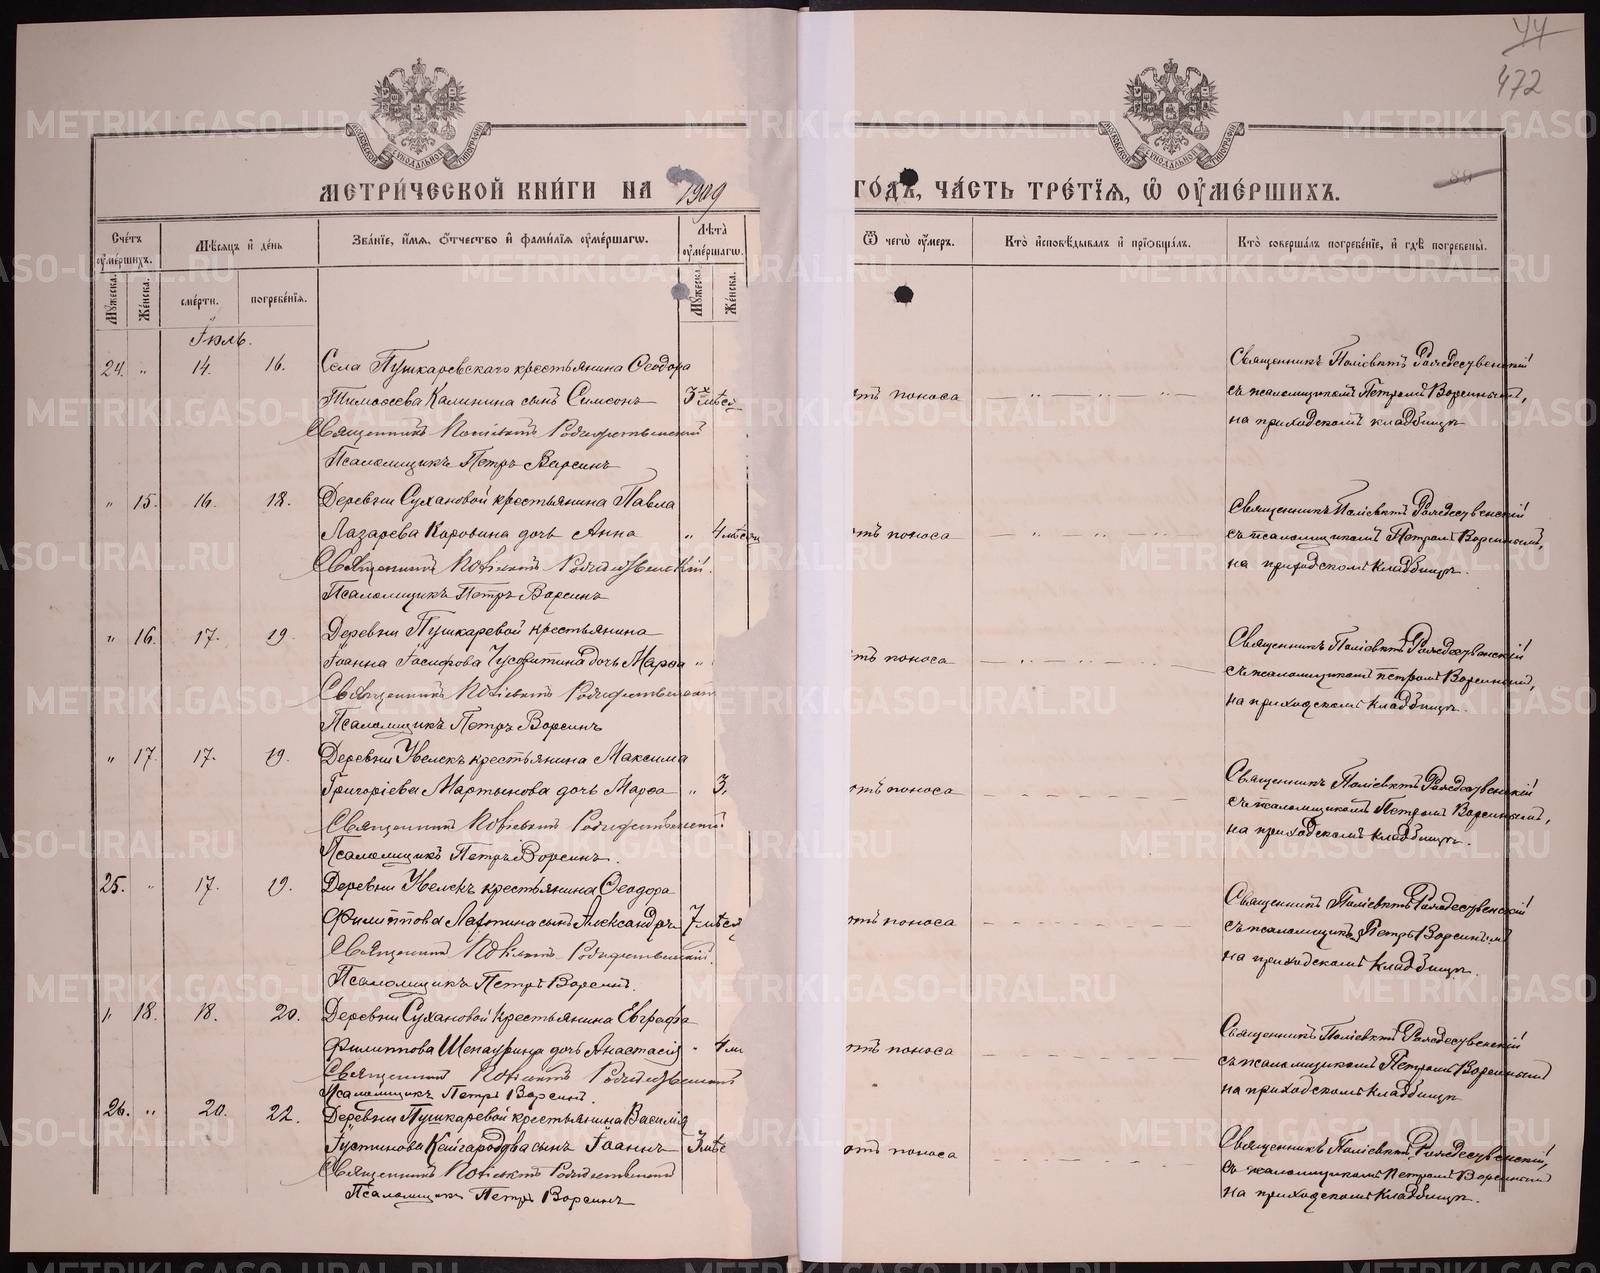 44
472
МЕТРИ́ЧЕСКОЙ КНИ́ГИ НА 1909
ГО́ДЪ, ЧА́СТЬ ТРЕ́ТІЯ, Ѽ ОУМЕ́РШИХЪ.
88
Сче́тъ оуме́ршихъ.
Мѣ́сяцъ и де́нь
Зва́ніе, и́мя, о́тчество и фами́лія оуме́ршагѡ.
Лѣта̀ оуме́ршагѡ.
Ѿ чегѡ̀ оу́меръ.
Кто̀ и́сповѣ́дывалъ и прїѡбща́лъ.
Кто̀ соверша́лъ погребе́ніе, и гдѣ̀ погребены̀.
Му́жеска.
Же́нска.
сме́рти.
погребе́нія.
Му́жеска.
Же́нска.
Іюль.
24. " 14. 16. Села Пушкаревскаго крестьянина Ѳеодора
Тимоѳеева Калинина сынъ Симеонъ 3 мѣся
Священникъ Поліевктъ Рождественскій
Псаломщикъ Петръ Ворсинъ
отъ поноса
Священникъ Поліевктъ Рождественскій
съ псаломщикомъ Петромъ Ворсинымъ,
на приходскомъ кладбищѣ
" 15. 16. 18. Деревни Сухановой крестьянина Павла
Лазарева Коровина дочь Анна " 4 мѣсяц
Священникъ Поліевктъ Рождественскій.
Псаломщикъ Петръ Ворсинъ
отъ поноса
Священникъ Поліевктъ Рождественскій
съ псаломщикомъ Петромъ Ворсинымъ,
на приходскомъ кладбищѣ.
" 16. 17. 19. Деревни Пушкаревой крестьянина
Іоанна Іосифова дочь Марѳа "
Священникъ Поліевктъ Рождественскій
Псаломщикъ Петръ Ворсинъ
тъ поноса
Священникъ Поліевктъ Рождественскій
съ псаломщикомъ Петромъ Ворсинымъ,
на приходскомъ кладбищѣ.
" 17. 17. 19. Деревни Увелекъ крестьянина Максима
Григоріева Мартынова дочь Марѳа " 3.
Священникъ Поліевктъ Рождественскій
Псаломщикъ Петръ Ворсинъ.
отъ поноса
Священникъ Поліевктъ Рождественскій
съ псаломщикомъ Петромъ Ворсинымъ,
на приходскомъ кладбищѣ.
25. " 17. 19. Деревни Увелекъ крестьянина Ѳеодора
Филиппова Лаптина сынъ Александръ 7 мѣся
Священникъ Поліевктъ Рождественскій.
Псаломщикъ Петръ Ворсинъ.
отъ поноса
Священникъ Поліевктъ Рождественскій
съ псаломщик. Петръ Ворсинымъ
на приходскомъ кладбищѣ.
" 18. 18. 20. Деревни Сухановой крестьянина Евграфа
Филиппова дочь Анастасія " 4 мѣ
Священникъ Поліевктъ Рождественскій
Псаломщикъ Петръ Ворсинъ.
отъ поноса
Священникъ Поліевктъ Рождественскій
съ псаломщикомъ Петромъ Ворсинымъ
на приходскомъ кладбищѣ
26. " 20. 22. Деревни Пушкаревой крестьянина Василія
Іустинова сынъ Іоаннъ 3 мѣс
Священникъ Поліевктъ Рождественскій
Псаломщикъ Петръ Ворсинъ
отъ поноса
Священникъ Поліевктъ Рождественскій,
съ псаломщикомъ Петромъ Ворсинымъ
на приходскомъ кладбищѣ.
METRIKI.GASO-URAL.RU